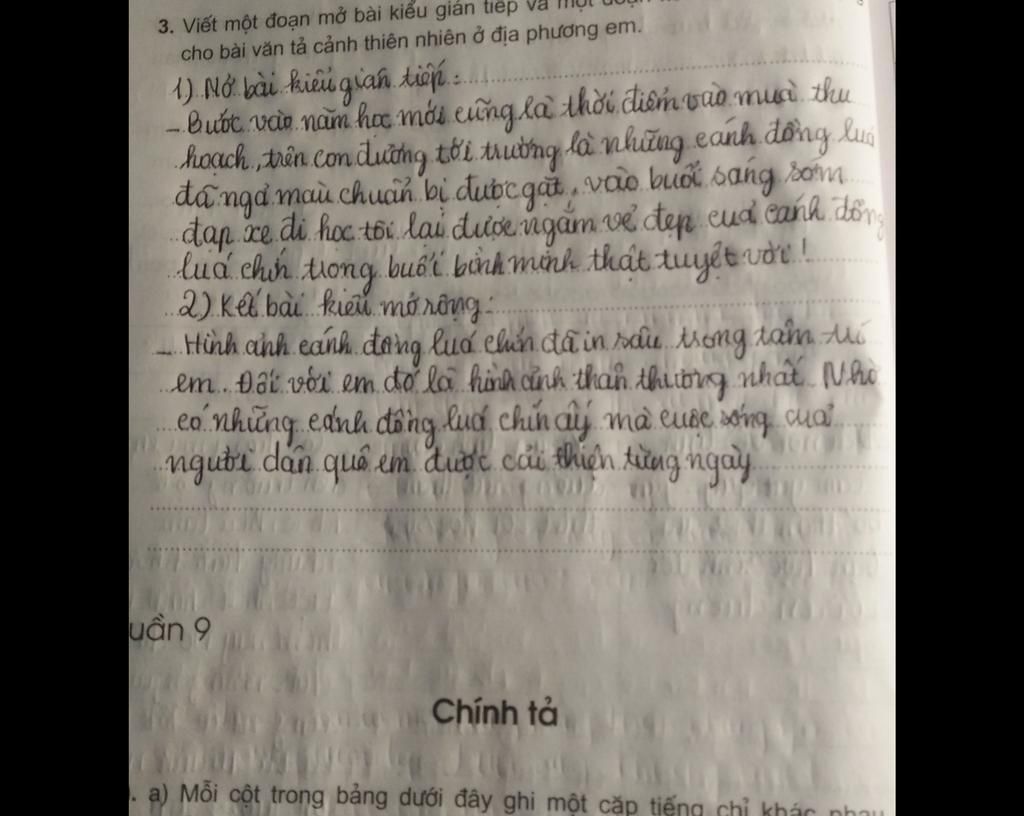 3. Viết một đoạn mở bài kiểu gián tiếp và một đoạn
cho bài văn tả cảnh thiên nhiên ở địa phương em.
1) Mở bài kiểu gián tiếp:
- Bước vào năm học mới cũng là thời điểm vào mùa thu
hoạch, trên con đường tới trường là những cánh đồng lúa
đã ngả màu chuẩn bị được gặt, vào buổi sáng sớm
đạp xe đi học tôi lại được ngắm vẻ đẹp của cánh đồng
lúa chín trong buổi bình minh thật tuyệt vời!
2) Kết bài kiểu mở rộng:
- Hình ảnh cánh đồng lúa chín đã in sâu trong tâm trí
em. Đối với em đó là hình ảnh thân thương nhất. Nhờ
có những cánh đồng lúa chín ấy mà cuộc sống của
người dân quê em được cải thiện từng ngày
uần 9
Chính tả
. a) Mỗi cột trong bảng dưới đây ghi một cặp tiếng chỉ khác nhau